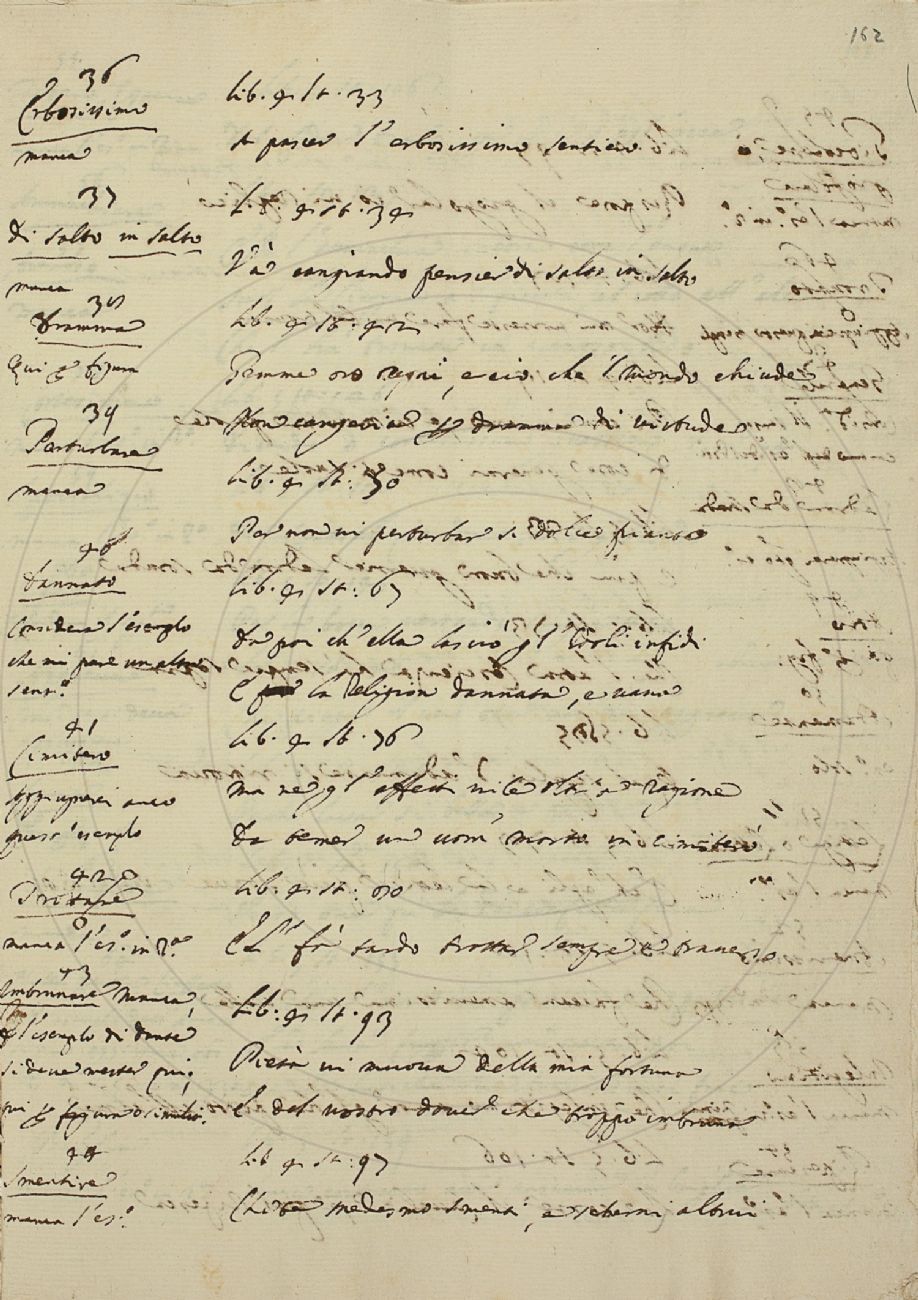 162
36
Erbosissimo
manca
lib. 4 st. 33
A pascer l'erbosissimo sentiero
37
di salto in salto
manca
L. 4 st. 34
Và cangiando pensier di salto in salto
38
Dramma
Qui è figura
lib. 4 st. 42
Gemme oro regni, e ciò che 'l mondo chiude
Non cangeria dramma di virtude
39
Perturbare
manca
lib. 4 st: 50
Per non vi perturbar sì dolce
40
Dannato
Considera l'esempio
che mi pare un altro
sent.o
lib. 4 st: 67
Da poi ch'ella lasciò gl'Idoli infidi
E la Religion dannata, e vana
41
Cimitero
anco
quest'esempio
lib. 4 st. 76
Ma ne gl'affetti oltr'a Ragione
Da temer un uom' morto in cimitero
42
Trottare
manca l'es.o in
lib. 4 st: 80
E fà tardo trottar sempre a traverso
43
Imbrunare manca
l'esempio di Dante
si deve metter qui,
qui è figura
Lib: 4 st. 93
Pietà vi muova della mia fortuna
E del vostro dover che troppo imbruna
44
Smentire
manca l'es.o
Lib 4 st: 97
Chi se medesmo smenti, e scherni altrui